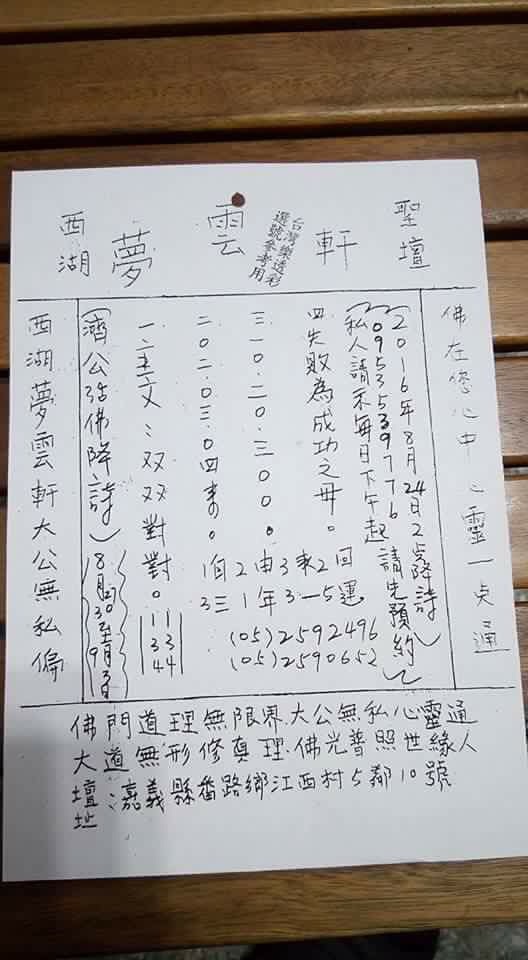 西湖夢雲軒聖壇
台灣樂透彩
選號參考用
佛在您心中心靈一貞通
(2016年8月24日2点降詩)
(0953539776請先預約)
私人請示每日下午起
四失敗為成功之毋。
三一0.二0.三000。
二0二.0三.0四來。
一.主文:双双對對。
11
33
44
(濟公活佛降詩)
8月30至9月3日
1自2由3來2回
3三1年3一5運
(05)2592496
(05)2590652
西湖夢雲軒大公無私偏
佛門道理無限界.大公無私心靈通
大道無形修真理.佛光普照世緣人
壇址:嘉義縣番路鄉江西村5鄰10號